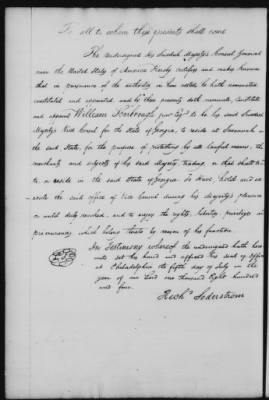 To all to whom these presents shall come
The undersigned his Swedish Majesty's Consul General
near the United States of America Hereby certifies and makes known
that in pursuance of the authority in him vested he hath nominated
constituted and appointed and by these presents doth nominate, constitute
and appoint William Scarbrough junr Esqr to be his said Swedish
Majesty's Vice Consul for the State of Georgia, to reside at Savannah in
the said State, for the purpose of protecting by all lawful means, the
merchants and subjects of his said Majesty, trading, or that shall trade
to, or reside in the said State of Georgia To Have, hold and ex
ercise the said office of Vice Consul during his Majesty's pleasure
or until duly revoked, and to enjoy the rights, liberties, privileges &
preeminences which belong thereto by reason of his function
In Testimony whereof the undersigned hath here
unto set his hand and affixed his seal of office
at Philadelphia the fifth day of July in the
year of our Lord one thousand Eight hundred
and four.
Richd Söderström